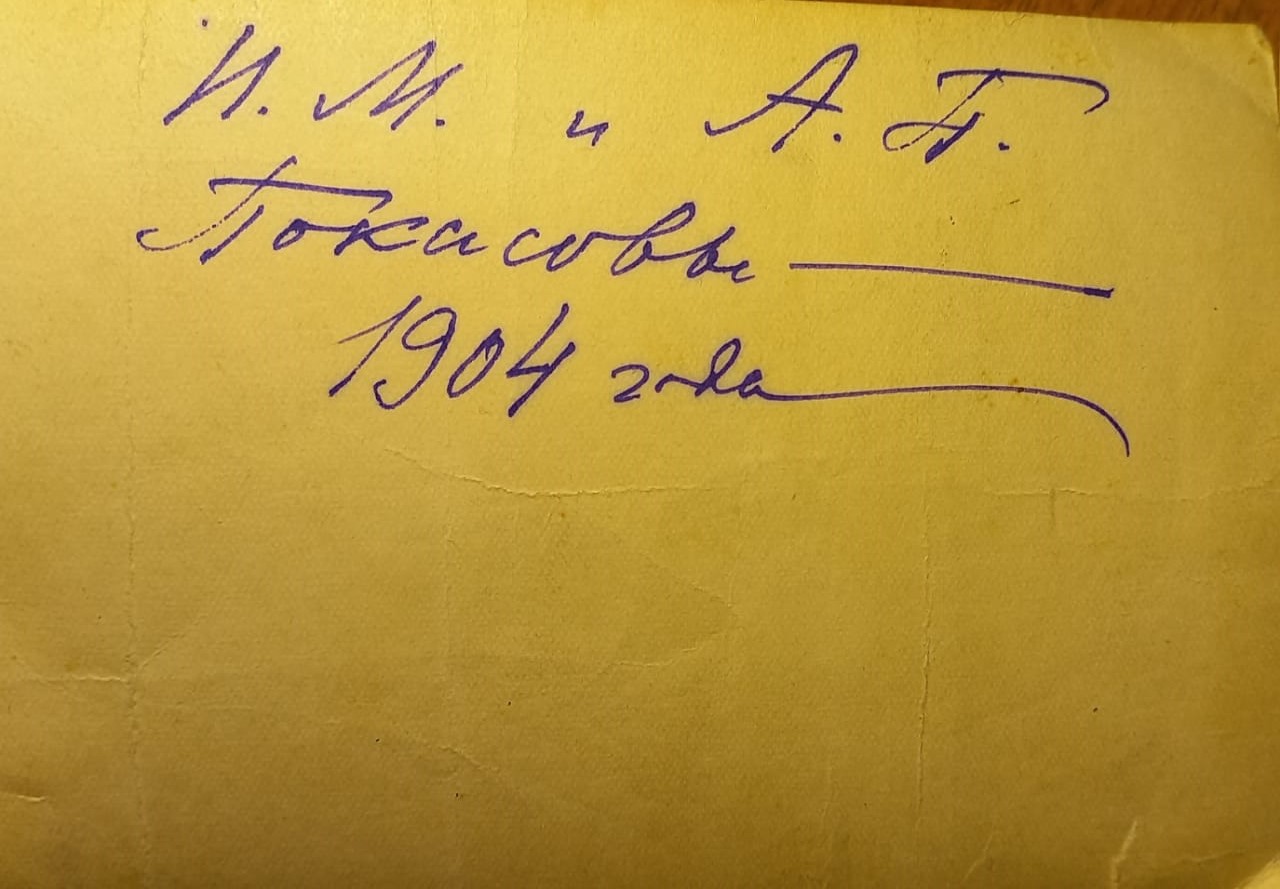 И. М. и А. П.
Покасовы
1904 года